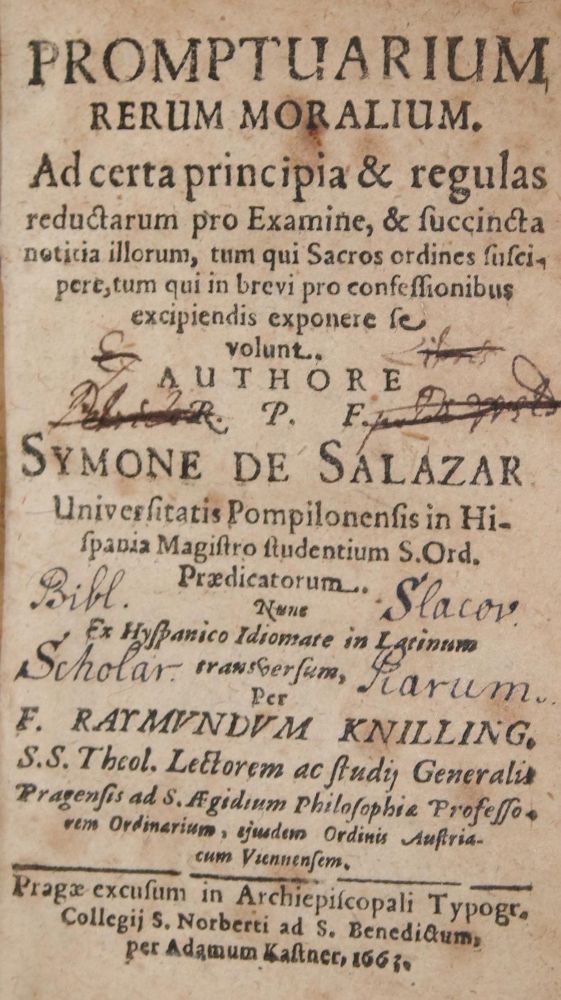 PROMPTUARIUM
RERUM MORALIUM.
Ad certa principia & regulas
reductarum pro Examine, & succincta
noticia illorum, tum qui Sacros ordines susci-
pere, tum qui in brevi pro confessionibus
excipiendis exponere se
volunt.
AUTHORE
R. P. F.
SYMONE DE SALAZAR
Universitatis Pompilonensis in Hi-
spania Magistro studentium S. Ord.
Prædicatorum.
Bibl. Nunc Slacov.
Ex Hyspanico Idiomate in Latinum
Scholar. transversum, Piarum.
Per
F. RAYMVNDVM KNILLING,
S.S. Theol. Lectorem ac studij Generalis
Pragensis ad S. Ægidium Philosophiæ Professo-
rem Ordinarium, ejusdem Ordinis Austria-
cum Viennensem.
Pragæ excusum in Archiepiscopali Typogr.
Collegij S. Norberti ad S. Benedictum,
per Adamum Kastner, 1663.